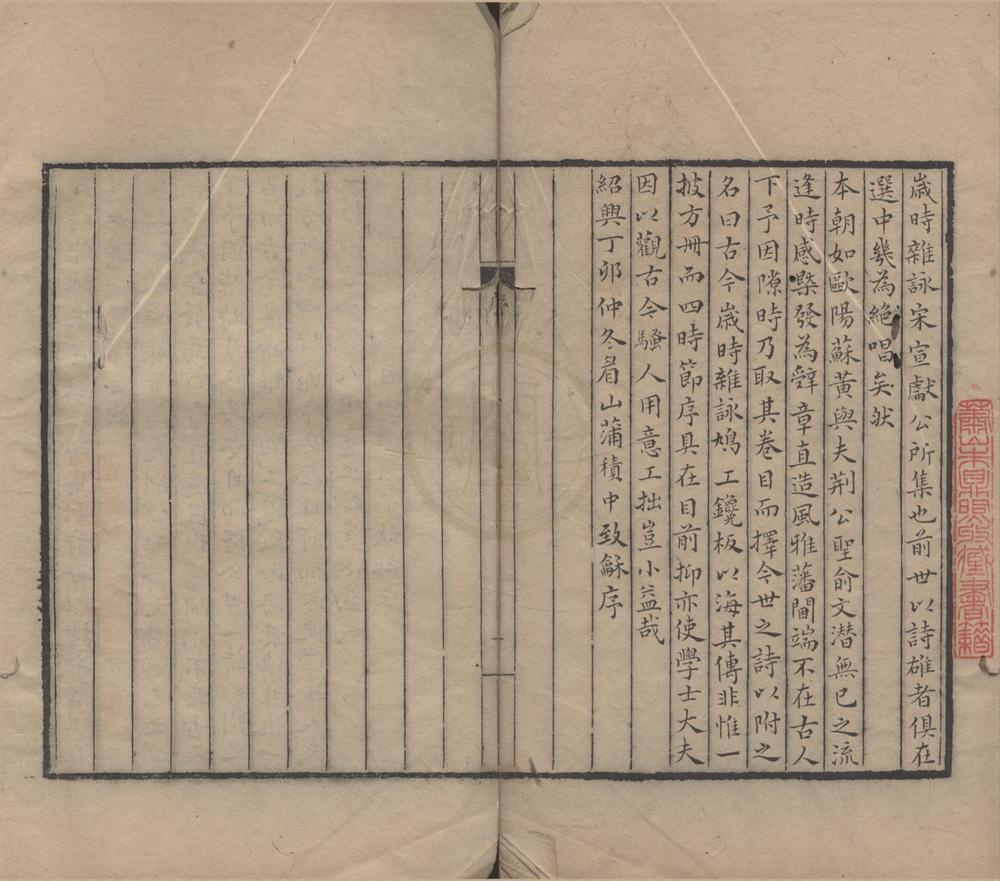 歲時雜詠宋宣獻公所集也前世以詩雄者俱在
選中幾為絕唱矣然
本朝如歐陽蘇黃與夫荆公聖俞文潜無已之流
逢時感槩發為辭章直造風雅藩閫端不在古人
下予因隙時乃取其卷目而擇今世之詩以附之
名曰古今歲時雜詠鳩工鑱板以海其傳非惟一
披方冊而四時節序具在目前抑亦使學士大夫
因以觀古今騷人用意工拙豈小益哉
紹興丁卯仲冬眉山蒲積中致龢序
序
蕭山朱鼎煦收藏書籍